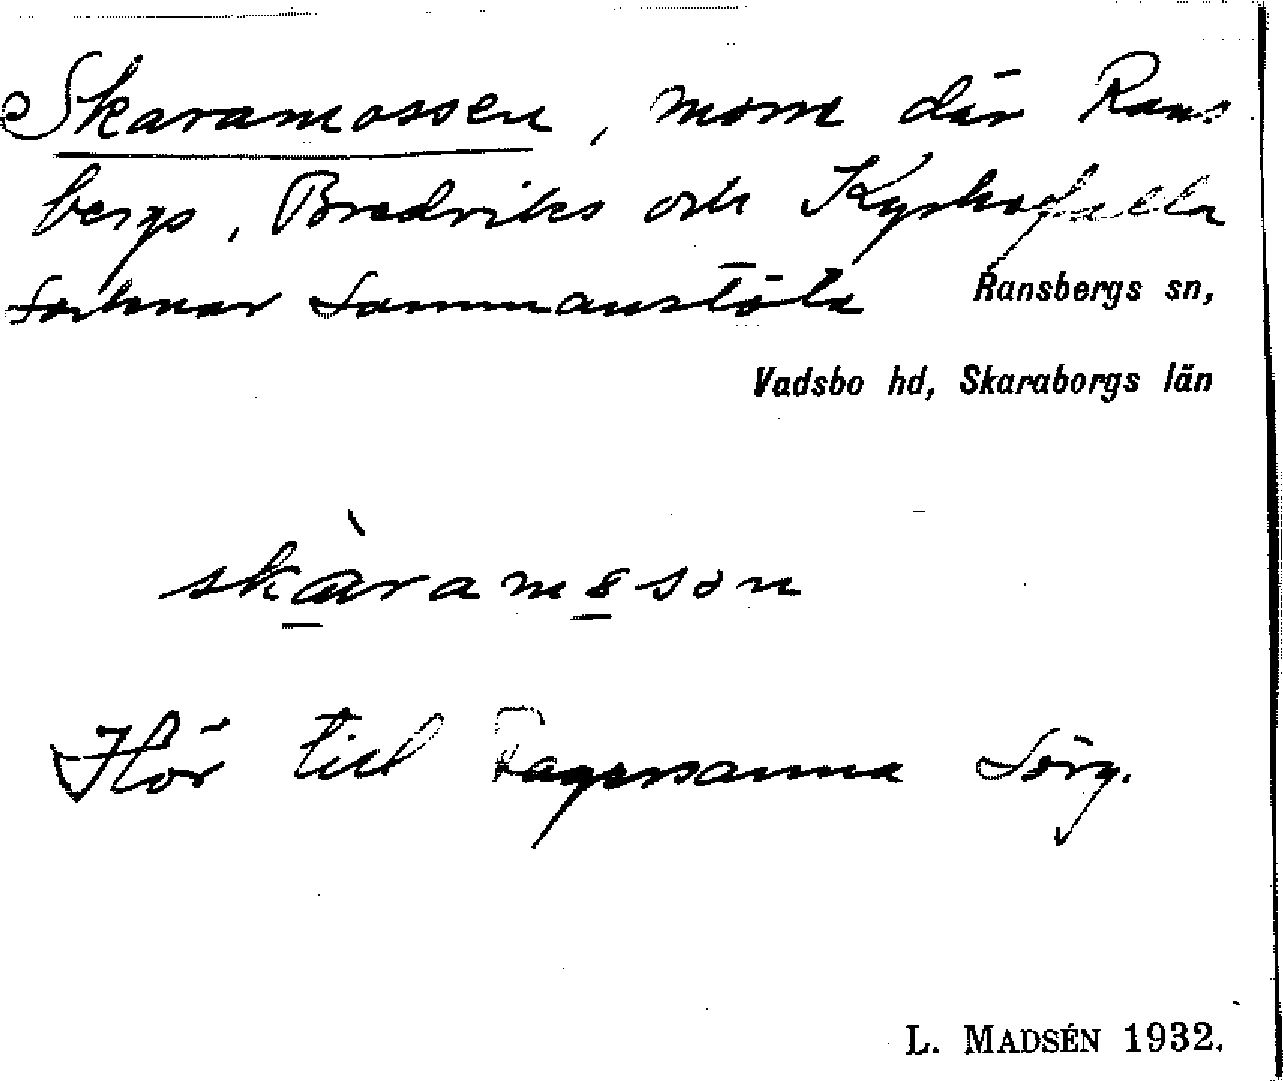 Skaramossen, mosse där Rans
bergs, Bredviks och Kyrkefalla
socknar sammanstöta
Ransbergs sn,
Vadsbo hd, Skaraborgs län
skàramɞsɔn
Hör till Fagersanna Sörg.
L. MADSÉN 1932.